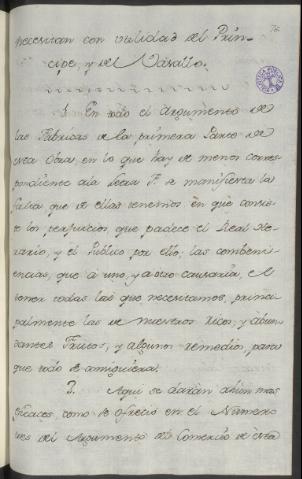 76
necesitan con utilidad del Prin-
cipe, y del Vasallo.
1. En todo el Argumento de
las Fabricas de la primera Parte de
esta Obra, en lo que hay de menos corres-
pondiente ála Letra F. se manifiesta la
falta que de ellas tenemos en que consis-
te los perjuicios, que padece el Real He-
rario, y el Publico por ello, las combeni-
encias, que á uno, y a otro causaria, el
tener todas las que necesitamos, princi-
palmente las de nuestros ricos, y abun-
dantes Frutos, y algunos remedios, para
que todo se consiguiera.
2. Aqui se darán ahun mas
eficaces como se ofrecio en el Numero
tres del Argumento del Comercio de esta